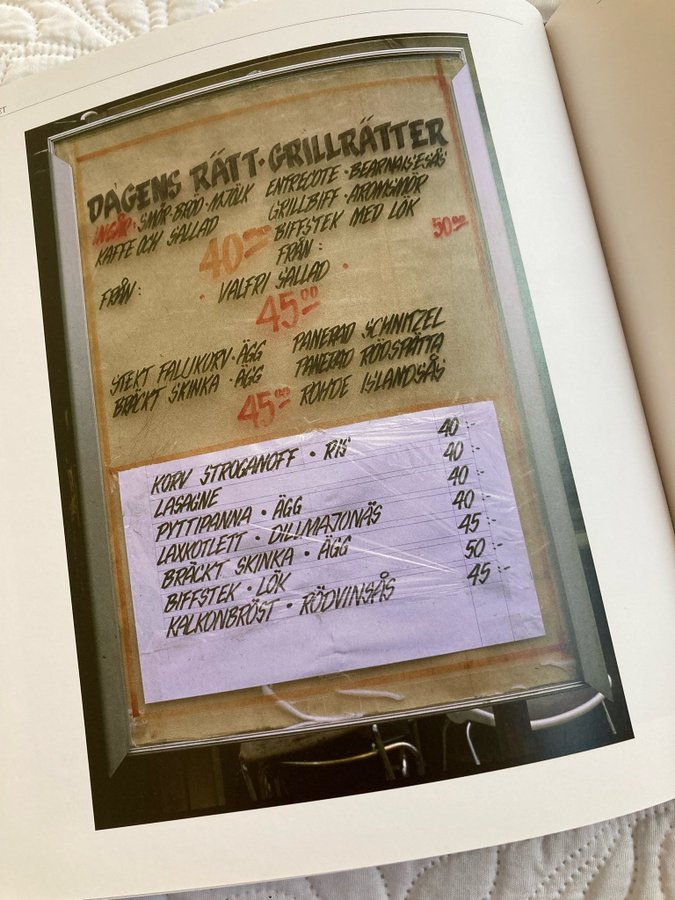 ET
DAGENS RÄTT · GRILLRÄTTER
INGÅR: SMÖR · BRÖD · MJÖLK
KAFFE OCH SALLAD
40.00
FRÅN:
ENTRECOTE · BEARNAISESÅS
GRILLBIFF · AROMSMÖR
BIFFSTEK MED LÖK
FRÅN:
50.00
· VALFRI SALLAD ·
45.00
STEKT FALUKORV · ÄGG
BRÄCKT SKINKA · ÄGG
45.00
PANERAD SCHNITZEL
PANERAD RÖDSPÄTTA
ISLANDSÅS
KORV STROGANOFF · RIS 40:-
LASAGNE 40:-
PYTTIPANNA · ÄGG 40:-
LAXKOTLETT · DILLMAJONÄS 40:-
BRÄCKT SKINKA · ÄGG 45:-
BIFFSTEK · LÖK 50:-
KALKONBRÖST · RÖDVINSÅS 45:-